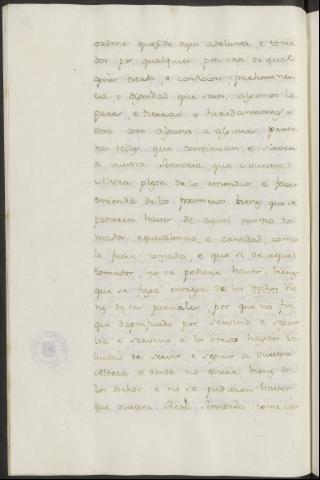 ordene que si de aqui adelante, e toma
dor por qualquier persona de qual
quier estado, o condicion, preheminen
cia, o dignidad que sean, algunos lu
gares, e tierras o heredamientos o
otra cosa alguna a algunas perso
nas dellas que continuan, e sirven
a vuestra Señoria, que a vuestra
Alteza plega de lo emendar, e facer
emienda de los primeros bienes que se
pudieren haver de aquel mismo to
mador, equivalencia, e cantidad, como
le fuere tomado, e que si de aquel
tomador, no se pudiere haver, bienes
que se faga entrega de los dichos bie
nes de sus parciales, por que no fin
que dapnificado por servicio, e seguir
a e servicio, e los otros hayan vo
luntad de servir, e seguir a vuestra
Alteza e donde no oviere bienes de
los dichos, e no se pudieren haver
que vuestra Real Señoria tome car